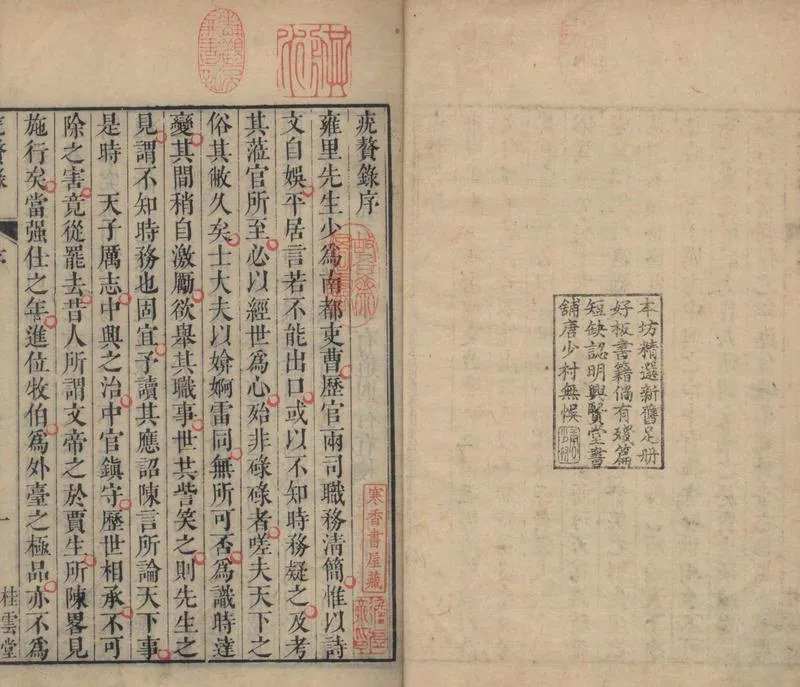 本坊精選新舊足冊
好板書籍倘有殘篇
短缺認明興賢堂書
舖唐少村無悞
疣贅錄序
雍里先生少為南都吏曹歷官兩司職務清簡惟以詩
文自娛平居言若不能出口或以不知時務疑之及考
其蒞官所至必以經世為心殆非碌碌者嗟夫天下之
俗其敝久矣士大夫以媕婀雷同無所可否為識時達
變其間稍自激勵欲舉其職事世共訾笑之則先生之
見謂不知時務也固宜予讀其應詔陳言所論天下事
是時 天子厲志中興之治中官鎮守歷世相承不可
除之害竟從罷去昔人所謂文帝之於賈生所陳畧見
施行矣當强仕之年進位牧伯為外臺之極品亦不為
桂雲堂
一
寒香書屋藏